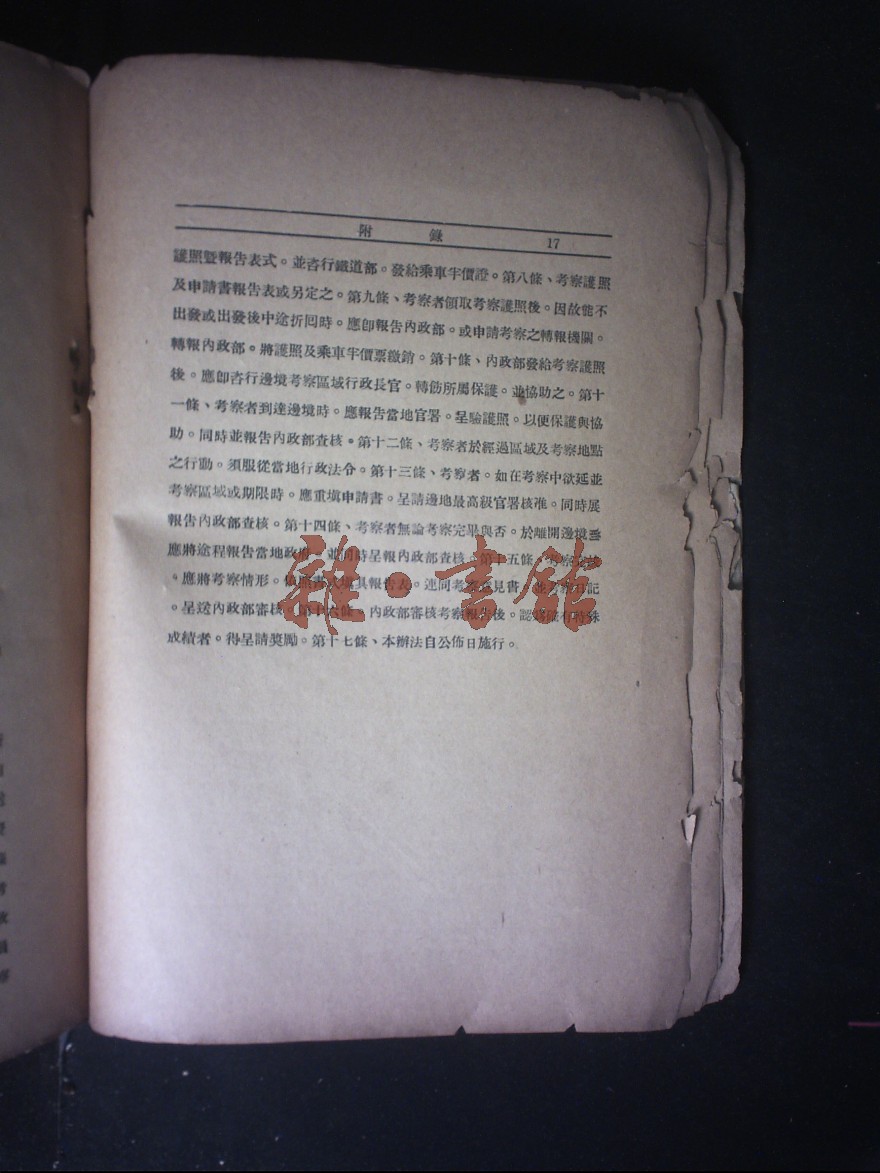 附錄 17
護照暨報告表式。並咨行鐵道部。發給乘車半價證。第八條、考察護照
及申請書報告表式另定之。第九條、考察者領取考察護照後。因故能不
出發或出發後中途折回時。應卽報告內政部。或申請考察之轉報機關。
轉報內政部。將護照及乘車半價票繳銷。第十條、內政部發給考察護照
後。應卽咨行邊境考察區域行政長官。轉飭所屬保護。並協助之。第十
一條、考察者到達邊境時。應報告當地官署。呈驗護照。以便保護與協
助。同時並報告內政部查核。第十二條、考察者於經過區域及考察地點
之行動。須服從當地行政法令。第十三條、考察者。如在考察中欲延並
考察區域或期限時。應重填申請書。呈請邊地最高級官署核准。同時展
報告內政部查核。第十四條、考察者無論考察完畢與否。於離開邊境
應將途程報告當地政府。並同時呈報內政部查核。第十五條、考察完
。應將考察情形。依照書式填具報告表。連同考察意見書。並考察日記
。呈送內政部審核。第十六條、內政部審核考察報告後。認為確有特殊
成績者。得呈請獎勵。第十七條、本辦法自公佈日施行。
雜·書館